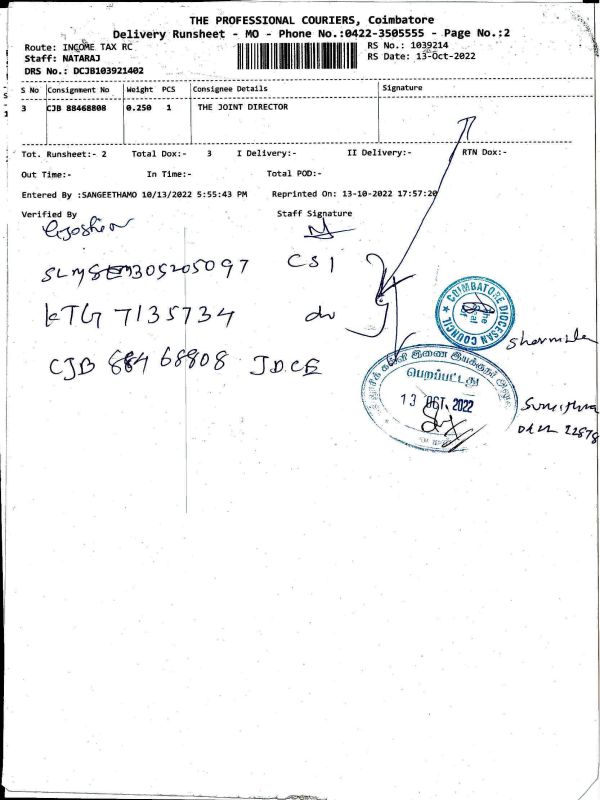 THE PROFESSIONAL COURIERS, Coimbatore
Delivery Runsheet - MO - Phone No.:0422-3505555 - Page No.:2
Route: INCOME TAX RC
RS No.: 1039214
Staff: NATARAJ
RS Date: 13-Oct-2022
DRS No.: DCJB103921402
S No Consignment No Weight PCS Consignee Details Signature
3 CJB 88468808 0.250 1 THE JOINT DIRECTOR
Tot. Runsheet:- 2 Total Dox:- 3 I Delivery:- II Delivery:- RTN Dox:-
Out Time:- In Time:- Total POD:-
Entered By :SANGEETHAMO 10/13/2022 5:55:43 PM Reprinted On: 13-10-2022 17:57:20
Verified By Staff Signature
CSI
KTG 7135734
CJB 88468808 JDCE
COIMBATORE DIOCESAN COUNCIL
Sharmila
கல்லூரி இணை இயக்குநர்
பெறப்பட்டது
13 OCT. 2022
Sumithra
22878